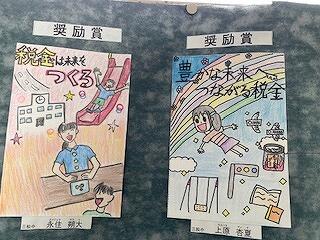 奨励賞
税金は未来を
つくる
三松小 永住 朔大
奨励賞
豊かな未来へ
つながる税金
三松小 上原 杏夏